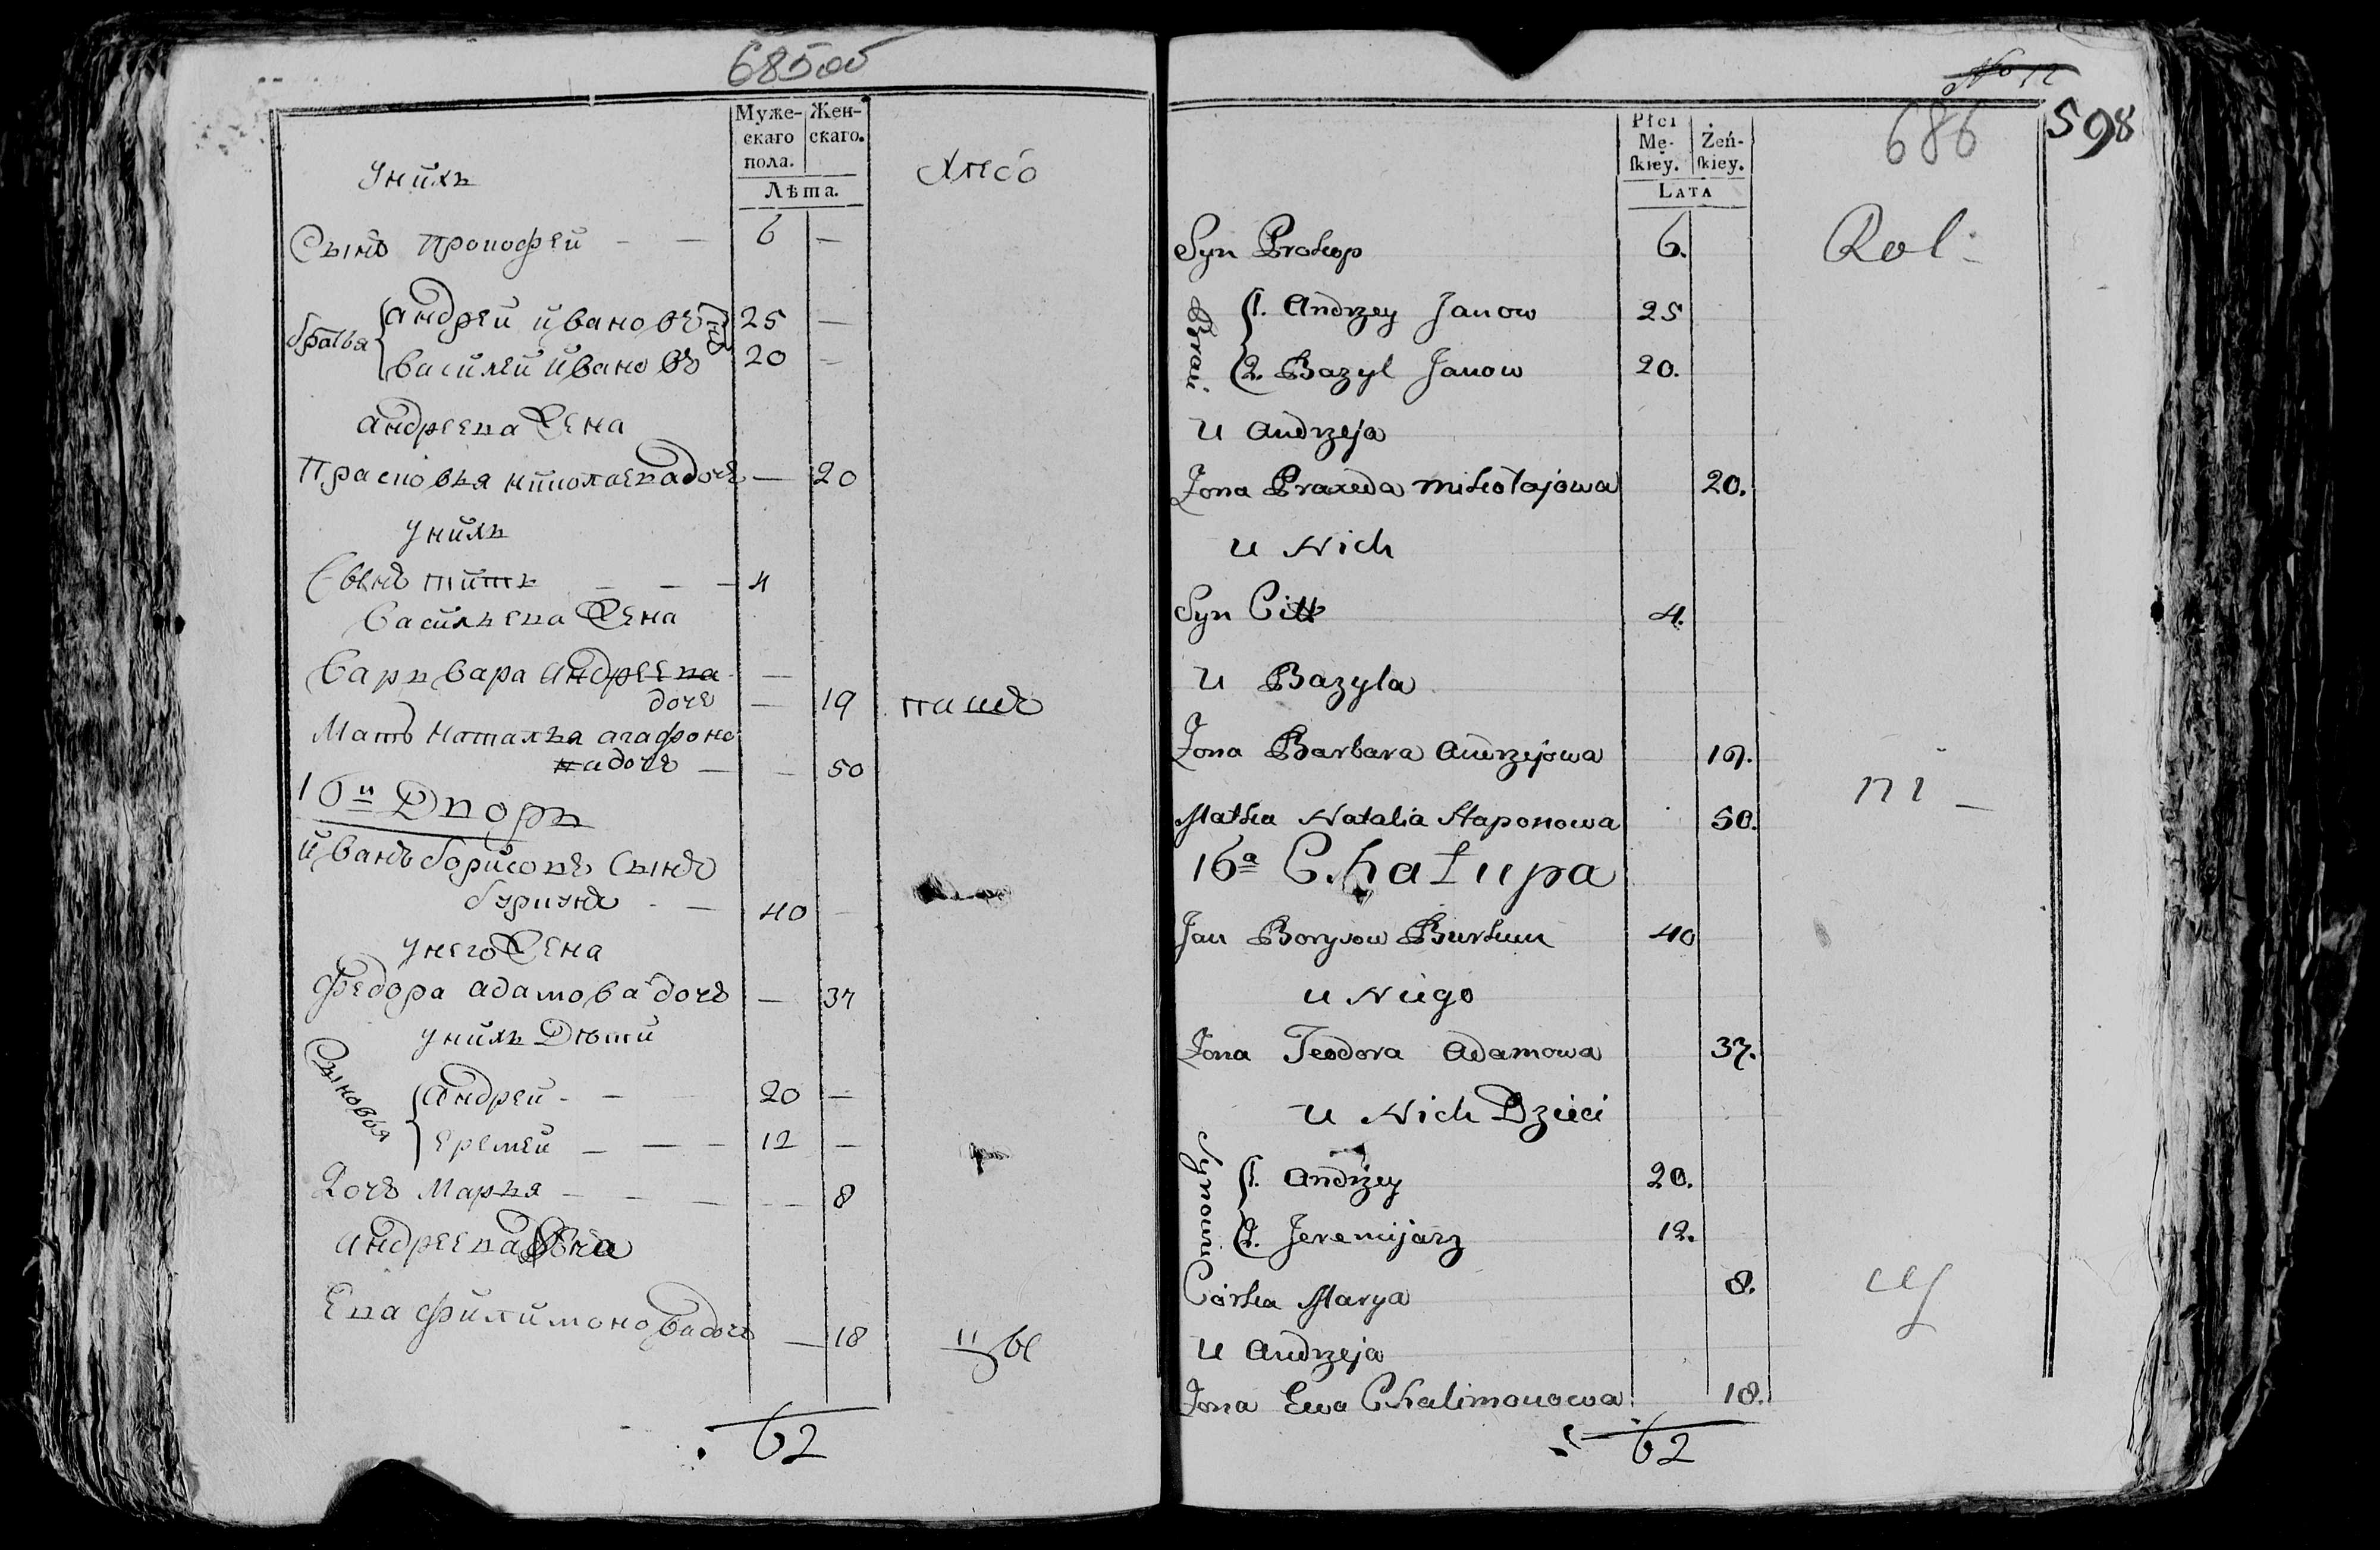 685об
Муже-
скаго
пола.
Жен-
скаго.
Лѣта.
Унихъ
Сынъ Прокофей - - 6 -
братья
Андрей Ивановъ 25 -
Василей Ивановъ 20 -
Андреева Жена
Прасковья Николаева дочь - 20
Унихъ
Сынъ Титъ - - - 4
Васильева Жена
Варъвара Андреева -
дочь - 19
Мать Наталья Агафоно
ва дочь - - 50
16й Дворъ
Иванъ Борисовъ Сынъ
Буркунъ - - 40 -
Унего Жена
Федора Адамова дочь - 37
Унихъ Дѣти
Сыновья
Андрей - - 20 -
Еремей - - - 12 -
Дочь Марья - - - - 8
Андреева Жена
Ева Филимонова дочь - 18
62
No 12
686
598
Płci
Mę-
ſkiey.
Żeń-
ſkiey.
LATA
Rol:
Syn Prokop 6.
Braci
1. Andrzey Janow 25
2. Bazyl Janow 20.
U Andrzeja
Żona Praxeda Mikołajowa 20.
U Nich
Syn Citt 4.
U Bazyla
Żona Barbara Andrzejowa 19.
Matka Natalia Haponowa 50.
16a Chałupa
Jan Borysow Burkun 40
U Niego
Żona Teodora Adamowa 37.
U Nich Dzieci
Synowie
1. Andrzey 20.
2. Jeremijarz 12.
Córka Marya 8.
U Andrzeja
Żona Ewa Chalimonowa 18.
62